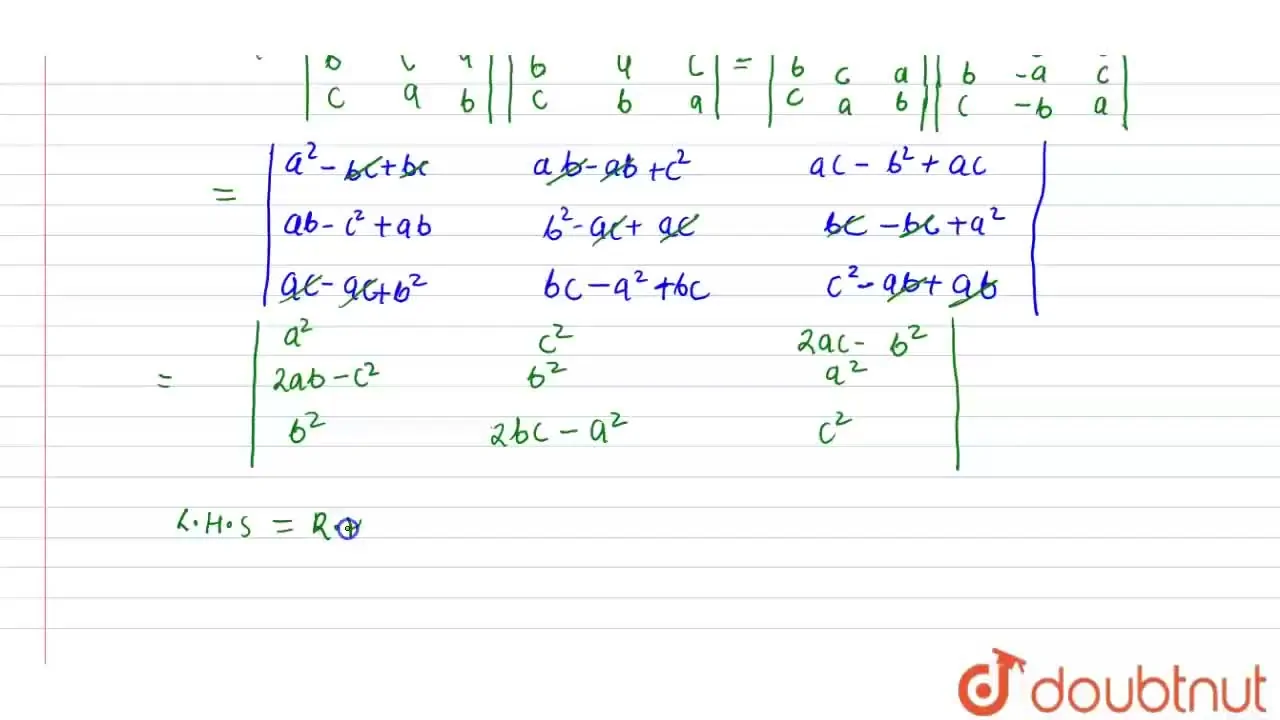 | b c a | | b a c | = | b c a | | b -a c |
| c a b | | c b a | | c a b | | c -b a |
= | a² - bc + bc ab - ab + c² ac - b² + ac |
| ab - c² + ab b² - ac + ac bc - bc + a² |
| ac - ac + b² bc - a² + bc c² - ab + ab |
| a² c² 2ac - b² |
= | 2ab - c² b² a² |
| b² 2bc - a² c² |
L.H.S = R.H
doubtnut